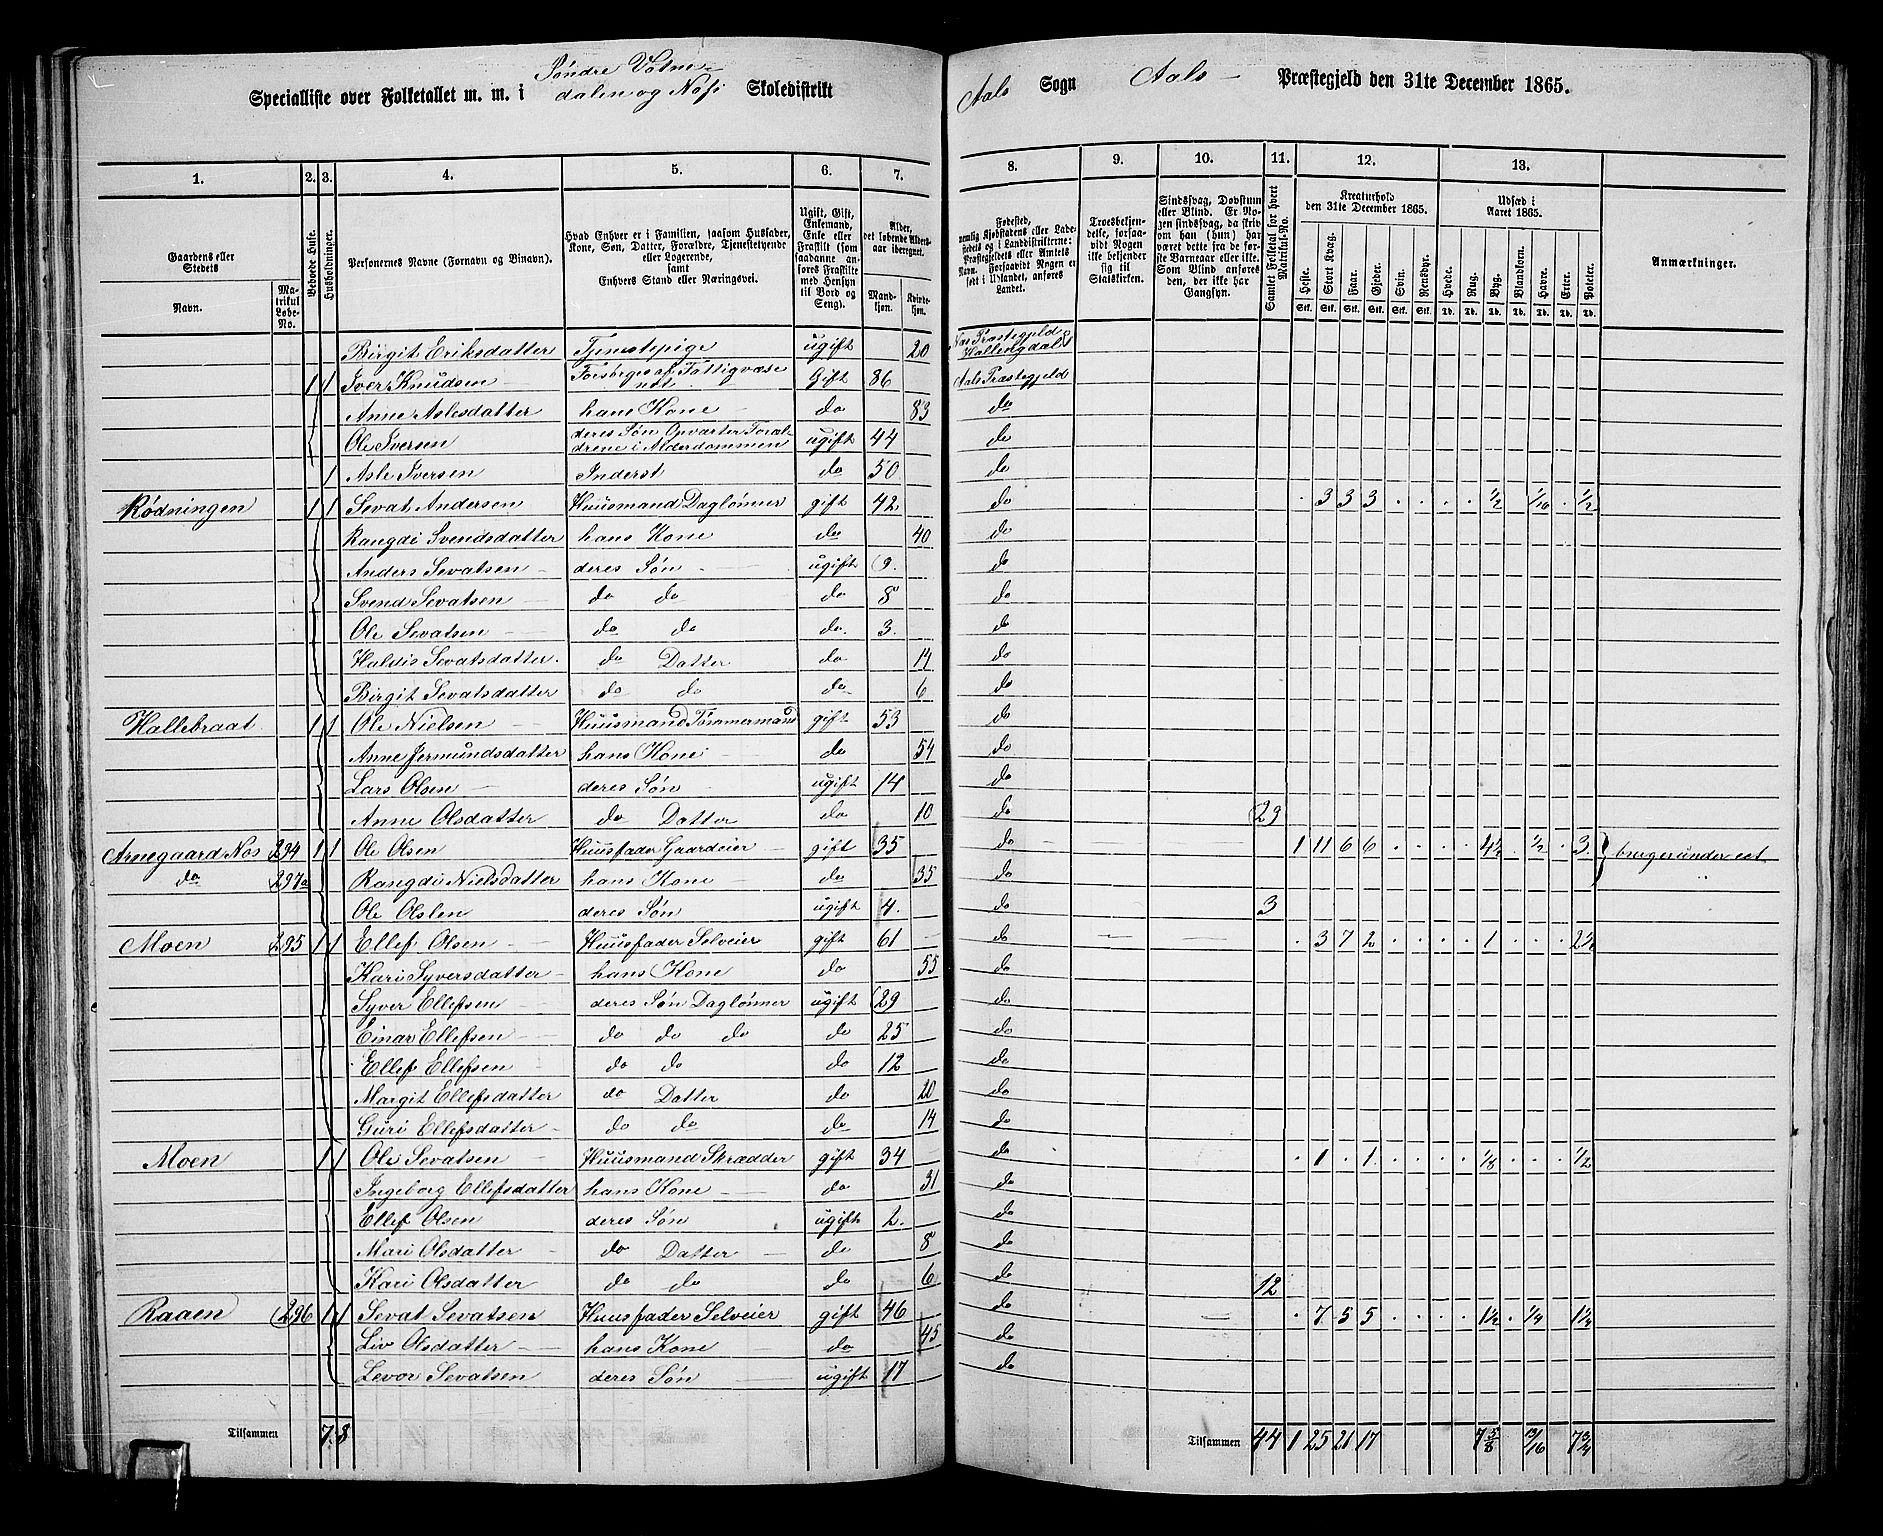 Specialliste over Folketallet m. m. i Søndre Votnedalen og Nøss Skoledistrikt
Aals Sogn Aals Præstegjeld den 31te December 1865.
1. 2. 3. 4. 5. 6. 7. 8. 9. 10. 11. 12. 13.
Gaardens eller Stedets
Navn.
Matrikul Løbe-No.
Beboede Huse.
Husholdninger.
Personernes Navne (Fornavn og Binavn).
Hvad Enhver er i Familien, saasom Husfader, Kone, Søn, Datter, Forældre, Tjenestetyende eller Logerende,
samt
Enhvers Stand eller Næringsvei.
Ugift, Gift, Enkemand, Enke eller Fraskilt (som saadanne anføres Fraskilte med Hensyn til Bord og Seng).
Alder, det løbende Aldersaar iberegnet.
Mandkjøn.
Kvindekjøn.
Fødested, nemlig Kjøbstadens eller Ladestedets og i Landdistrikterne: Præstegjeldets eller Amtets Navn. Forsaavidt Nogen er født i Udlandet, anføres Landet.
Troesbekjendelse, forsaavidt Nogen ikke bekjender sig til Statskirken.
Sindssvag, Døvstum eller Blind. Er Nogen sindssvag, da skriv om han (hun) har været dette fra de første Barneaar eller ikke. Som Blind anføres den, der ikke har Gangsyn.
Samlet Folketal for hvert Matrikul-No.
Kreaturhold den 31te December 1865.
Heste. Stort Kvæg. Faar. Gjeder. Svin. Rensdyr.
Udsæd i Aaret 1865.
Hvede. Rug. Byg. Blandkorn. Havre. Erter. Poteter.
Anmærkninger.
Birgit Eriksdatter Tjenestepige ugift 20 Næs Præstegjeld Hallingdal
1 1 Iver Knudsen Forsørges af Fattigvæsenet Gift 86 Aals Præstegjeld
Anne Aslesdatter hans Kone do 83 do
Ole Iversen deres Søn Opvarter Forældrene i Alderdommen ugift 44 do
1 Asle Iversen Inderst do 50 do
Rødningen 1 1 Sevat Andersen Huusmand Daglønner gift 42 do . 3 3 3 . . . . ½ . 1/16 . ½
Rangdi Svendsdatter hans Kone do 40 do
Anders Sevatsen deres Søn ugift 9. do
Svend Sevatsen do do do 8 do
Ole Sevatsen do do do. 3. do
Haldis Sevatsdatter. do Datter do 14 do
Birgit Sevatsdatter do do do 6 do
Hallebraat. 1 1 Ole Nielsen Huusmand Tømmermand gift 53 do
Anne Jermundsdatter hans Kone do 54 do
Lars Olsen deres Søn ugift 14 do
Anne Olsdatter do Datter do 10 do 23
Arnegaard Nos 294 1 1 Ole Olsen Huusfader Gaardeier gift 35 do 1 11 6 6 . . . . 4½ . ½ . 3.
do 297a Rangdi Nielsdatter hans Kone do 35 do
Ole Olsen deres Søn ugift 4. do 3
Moen 295 1 1 Ellef Olsen Huusfader Selveier gift 61 do . 3 7 2 . . . . 1 . . .
Kari Syversdatter hans Kone do 55 do
Syver Ellefsen deres Søn Daglønner ugift 29 do
Einar Ellefsen do do do do 25 do
Ellef Ellefsen do do do 12 do
Margit Ellefsdatter do Datter do 20 do
Guri Ellefsdatter do do do 14 do
Moen 1 1 Ole Sevatsen Huusmand Skrædder gift 34 do . 1 . 1 . . . . 1/8 . . . ½
Ingeborg Ellefsdatter hans Kone do 31 do
Ellef Olsen deres Søn ugift 2. do
Mari Olsdatter do Datter do 8 do
Kari Olsdatter do do do 6 do 12
Raaen 296 1 1 Sevat Sevatsen Huusfader Selveier gift 46 do . 7 5 5 . . . . 1½ . ¼ . 1¼
Liv Olsdatter hans Kone do 45 do
Levor Sevatsen deres Søn ugift 17 do
Tilsammen 7 8
Tilsammen 44 1 25 21 17 7 5/8 13/16 7 3/4